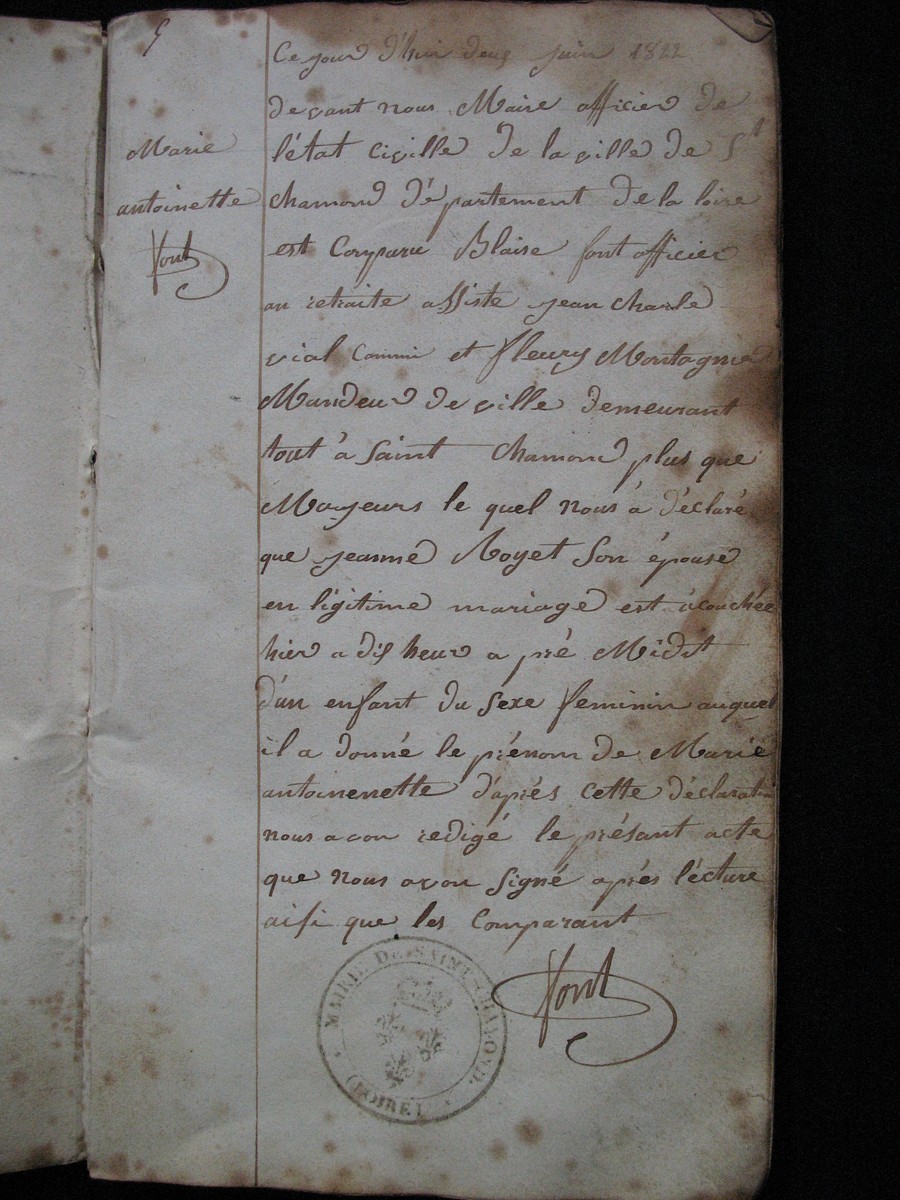 5
Marie
antoinette
font
Ce jour d'hui deux juin 1822
devant nous Maire officier de
l'état civille de la ville de St
chamond d'épartement de la loire
est Comparu Blaise font officier
an retraite assiste jean charle
vial Commi et fleury Montagnier
Mandeur de ville demeurant
tout à Saint Chamond plus que
Mayeurs le quel nous à déclaré
que jeanne Royet Son épouse
en légitime mariage est àcouchée
hier a dix heur a pré Midit
d'un enfant du Sexe feminin auquel
il a donné le prénom de Marie
antoinenette d'après cette déclaration
nous avon redigé le présant acte
que nous avon Signé après lécture
aisi que les Comparant
font
MAIRIE DE SAINT-CHAMOND
(LOIRE)